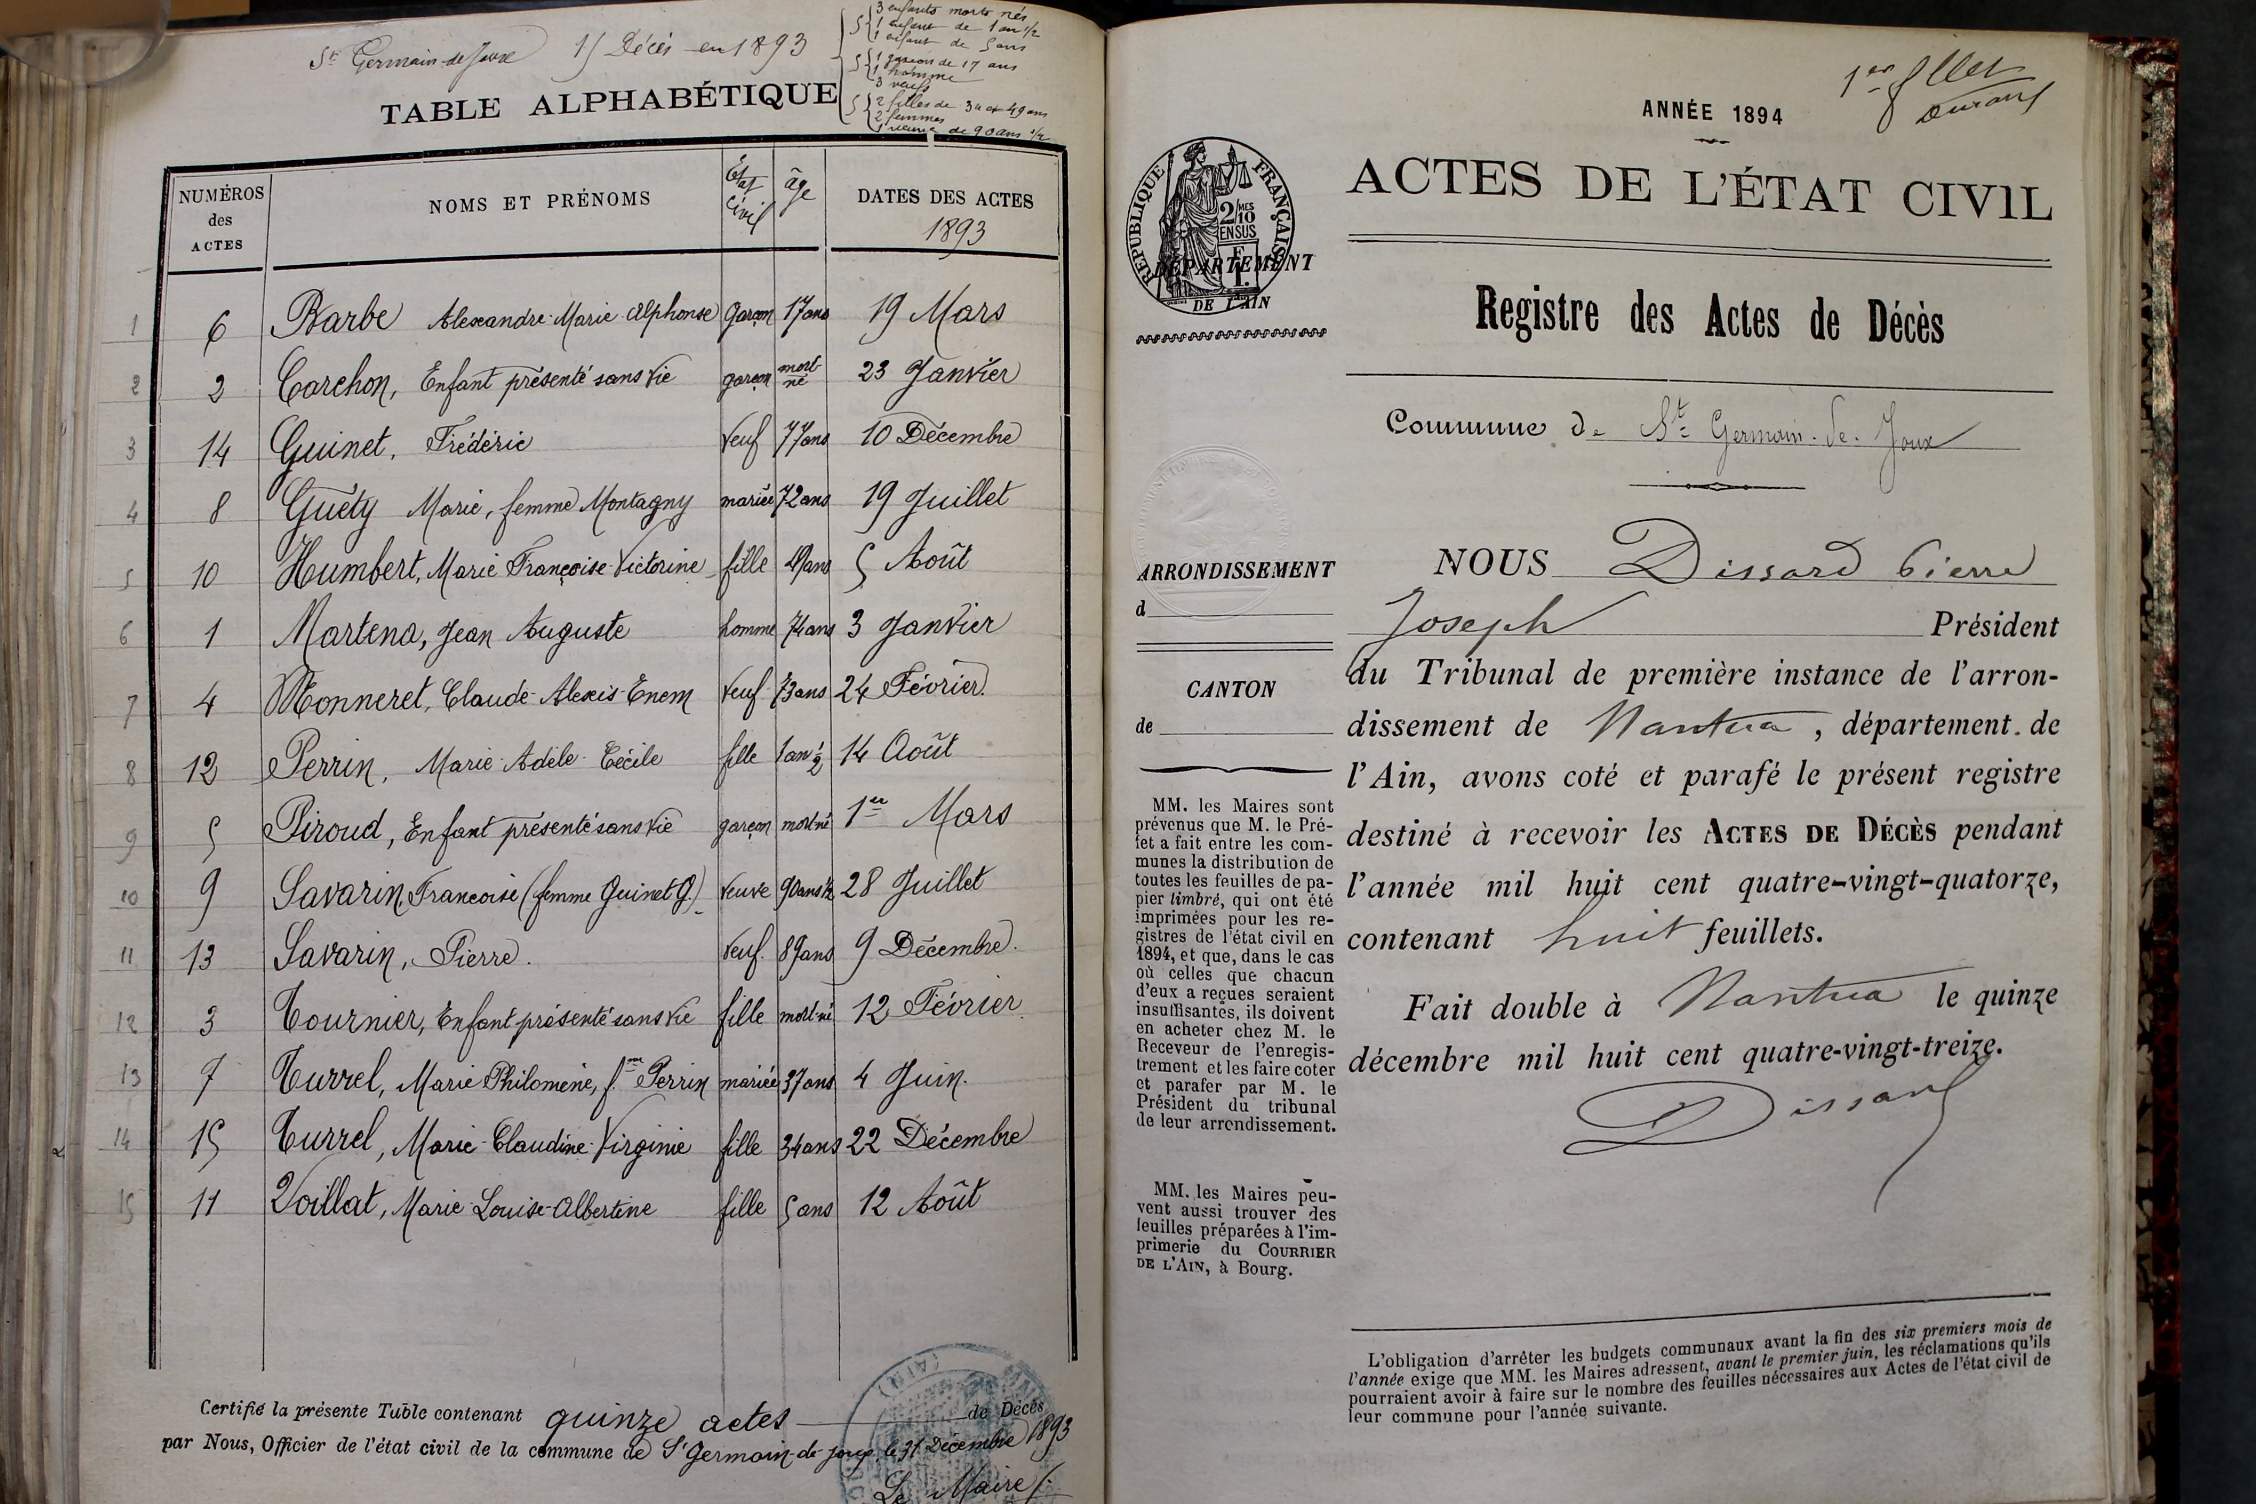 St Germain-de-Joux 15 Décès en 1893
3 enfants morts nés
1 enfant de 1 an 1/2
1 enfant de 5 ans
1 garçon de 17 ans
1 homme
3 veufs
2 filles de 34 et 49 ans
2 femmes
1 veuve de 90 ans 1/2
TABLE ALPHABÉTIQUE
NUMÉROS des ACTES NOMS ET PRÉNOMS État civil âge DATES DES ACTES 1893
1 6 Barbe Alexandre-Marie-Alphonse garçon 17 ans 19 Mars
2 2 Carchon, Enfant présenté sans vie garçon mort-né 23 Janvier
3 14 Guinet, Frédéric veuf 77 ans 10 Décembre
4 8 Guéty Marie, femme Montagny mariée 72 ans 19 Juillet
5 10 Humbert, Marie Françoise-Victorine fille 49 ans 5 Août
6 1 Martena, Jean Auguste homme 74 ans 3 Janvier
7 4 Monneret, Claude-Alexis-Enem veuf 73 ans 24 Février.
8 12 Perrin, Marie-Adèle-Cécile fille 1 an 1/2 14 Août
9 5 Piroud, Enfant présenté sans vie garçon mort-né 1er Mars
10 9 Savarin, Francoise (femme Guinet G.) veuve 90 ans 1/2 28 Juillet
11 13 Savarin, Pierre. veuf. 89 ans 9 Décembre.
12 3 Tournier, Enfant présenté sans vie fille mort-né 12 Février.
13 7 Turrel, Marie Philomène, f.me Perrin mariée 37 ans 4 Juin.
14 15 Turrel, Marie-Claudine-Virginie fille 34 ans 22 Décembre
15 11 Voillat, Marie-Louise-Albertine fille 5 ans 12 Août
Certifié la présente Table contenant quinze actes de Décès
par Nous, Officier de l'état civil de la commune de St Germain-de-Joux, le 31 Décembre 1893
Le Maire
1er fllet
ANNÉE 1894
RÉPUBLIQUE FRANÇAISE
2/10 MES EN SUS
ACTES DE L'ÉTAT CIVIL
DÉPARTEMENT
DE L'AIN
Registre des Actes de Décès
Commune de St Germain-de-Joux
ARRONDISSEMENT
d
CANTON
de
MM. les Maires sont
prévenus que M. le Pré-
fet a fait entre les com-
munes la distribution de
toutes les feuilles de pa-
pier timbré, qui ont été
imprimées pour les re-
gistres de l'état civil en
1894, et que, dans le cas
où celles que chacun
d'eux a reçues seraient
insuffisantes, ils doivent
en acheter chez M. le
Receveur de l'enregis-
trement et les faire coter
et parafer par M. le
Président du tribunal
de leur arrondissement.
MM. les Maires peu-
vent aussi trouver des
feuilles préparées à l'im-
primerie du COURRIER
DE L'AIN, à Bourg.
NOUS Dissard Pierre
Joseph Président
du Tribunal de première instance de l'arron-
dissement de Nantua, département de
l'Ain, avons coté et parafé le présent registre
destiné à recevoir les ACTES DE DÉCÈS pendant
l'année mil huit cent quatre-vingt-quatorze,
contenant huit feuillets.
Fait double à Nantua le quinze
décembre mil huit cent quatre-vingt-treize.
Dissard
L'obligation d'arrêter les budgets communaux avant la fin des six premiers mois de
l'année exige que MM. les Maires adressent, avant le premier juin, les réclamations qu'ils
pourraient avoir à faire sur le nombre des feuilles nécessaires aux Actes de l'état civil de
leur commune pour l'année suivante.